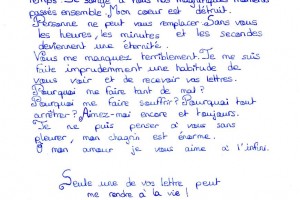 temps. Je songe à nous nos magnifiques moments
passés ensemble. Mon coeur est détruit.
Personne ne peut vous remplacer. Sans vous
les heures, les minutes et les secondes
deviennent une éternité.
Vous me manquez terriblement. Je me suis
faite imprudemment une habitude de
vous voir et de recevoir vos lettres.
Pourquoi me faire tant de mal?
Pourquoi me faire souffrir? Pourquoi tout
arrêter? Aimez-moi encore et toujours.
Je ne puis penser à vous sans
pleurer, mon chagrin est énorme.
O mon amour je vous aime à l'infini.
Seule une de vos lettre peut
me rendre à la vie!